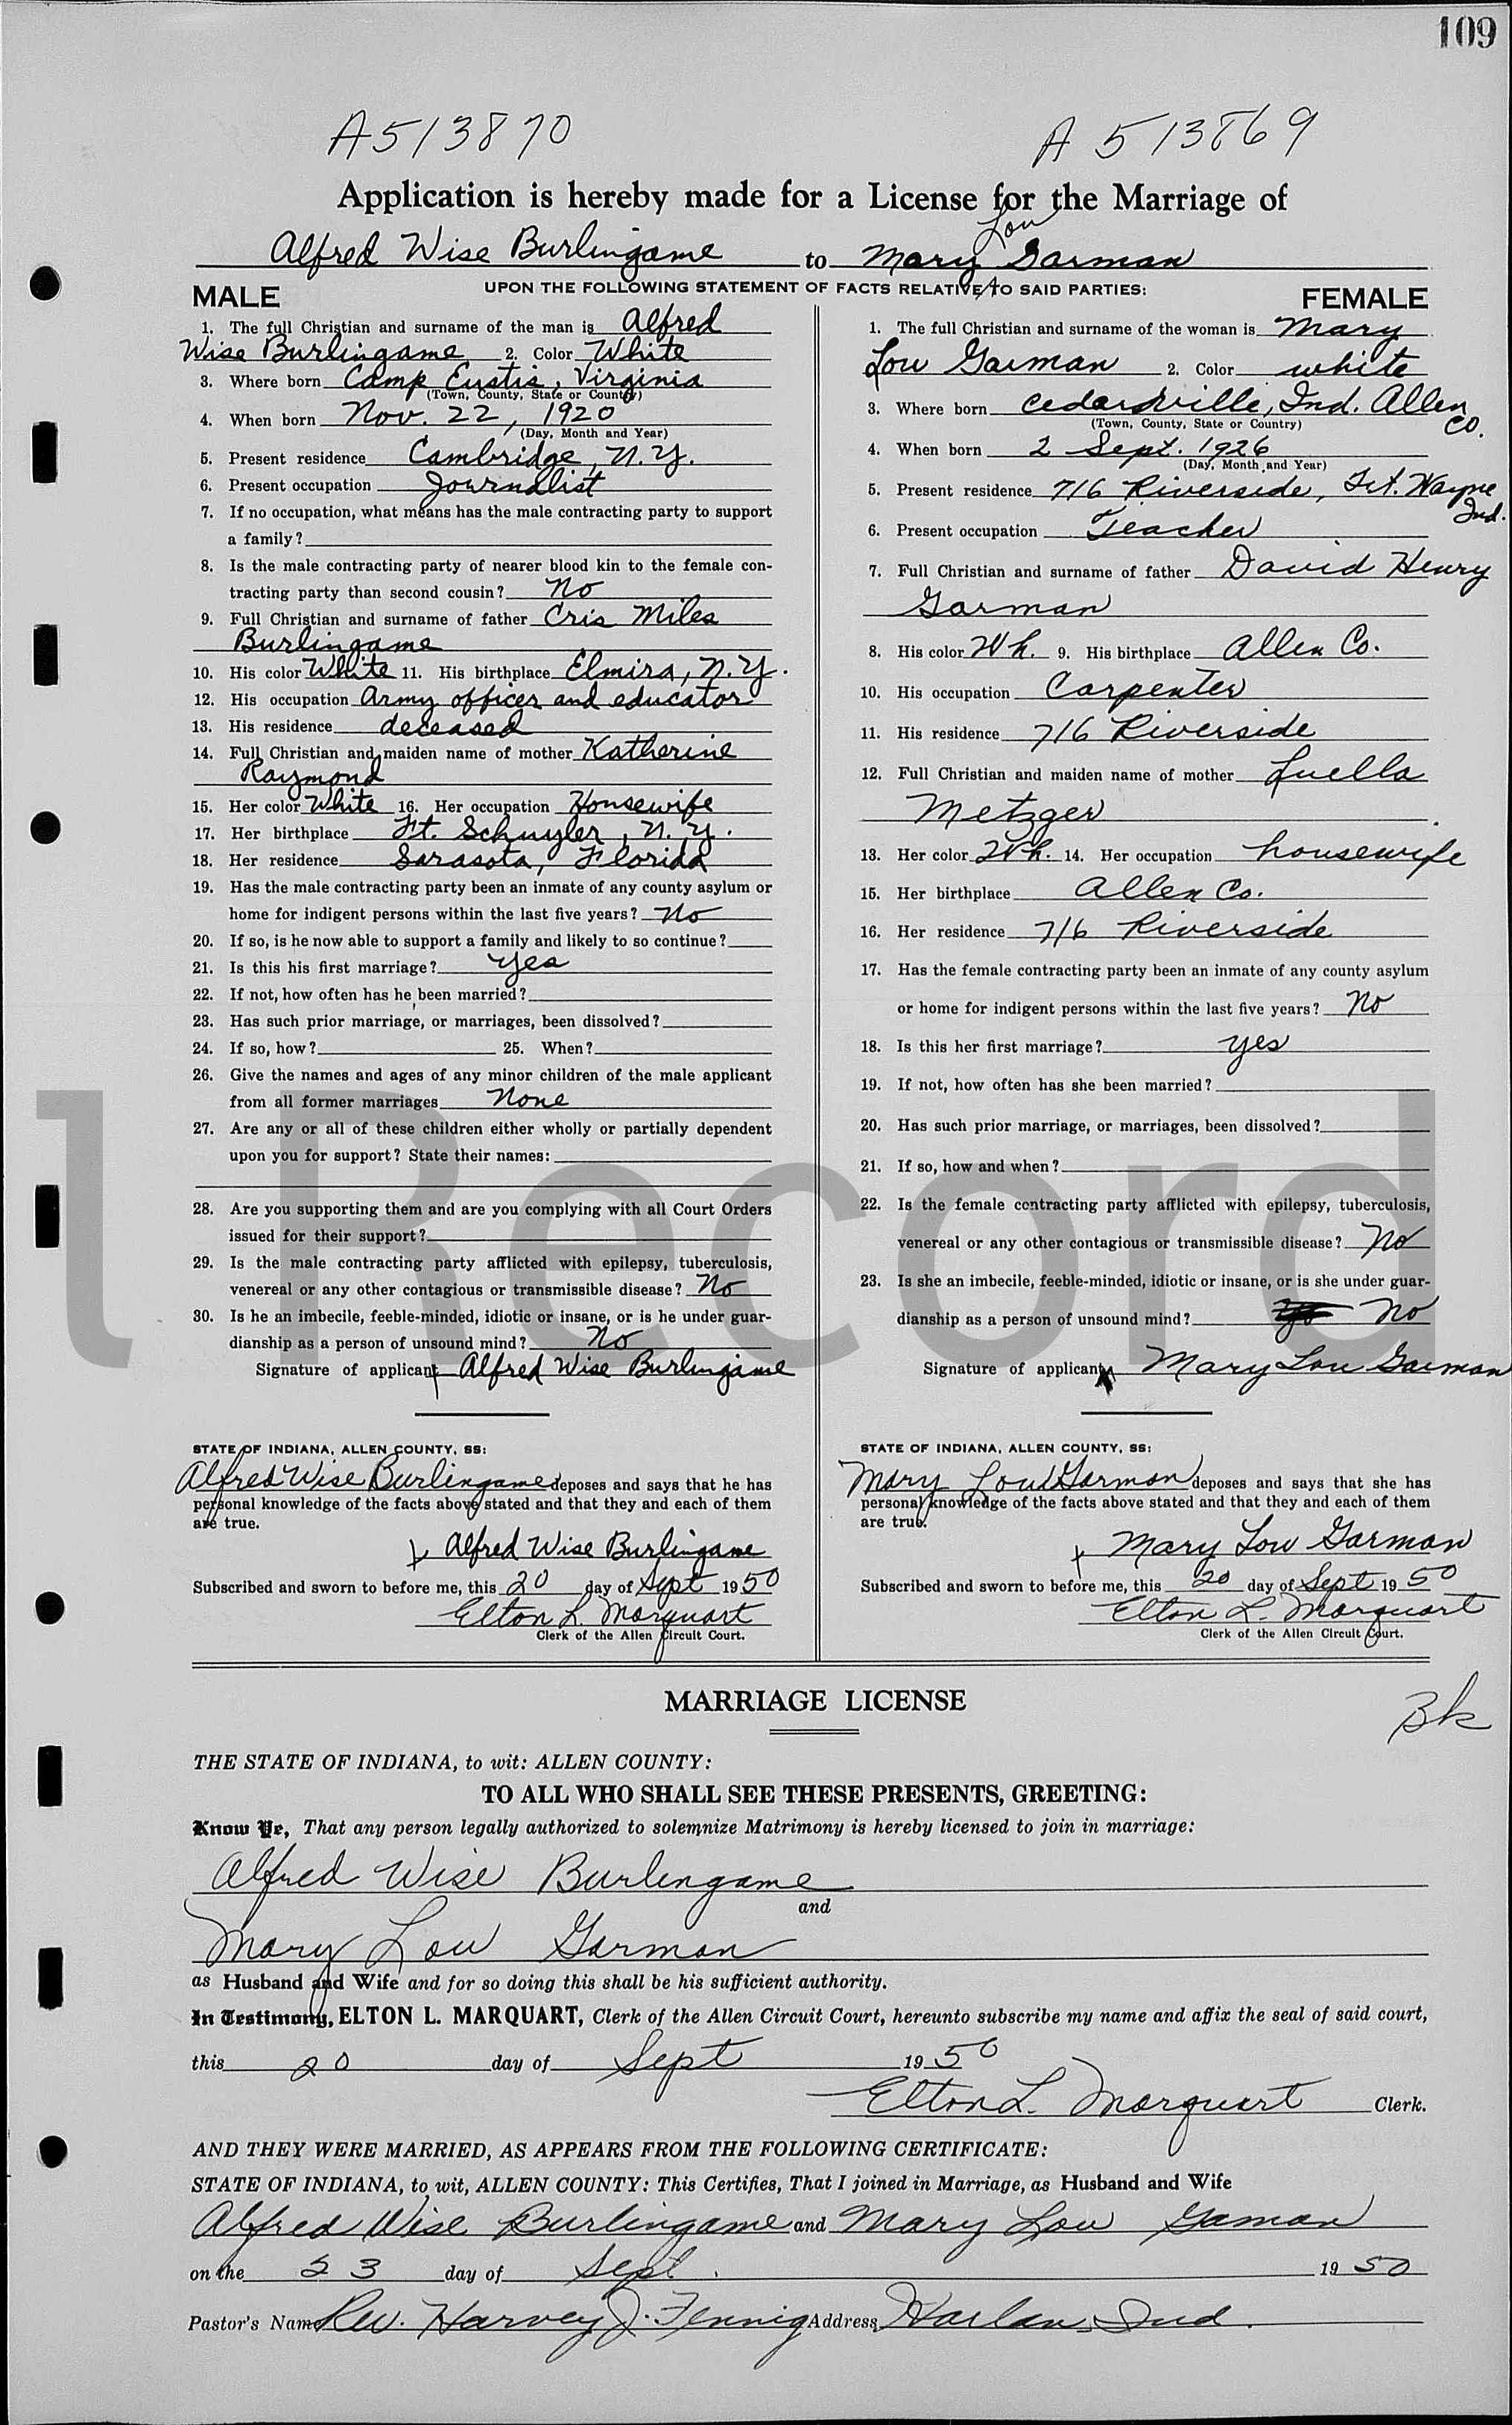 109
A513870
A 513869
Application is hereby made for a License for the Marriage of
Lou
Alfred Wise Burlingame to Mary Garman
UPON THE FOLLOWING STATEMENT OF FACTS RELATIVE TO SAID PARTIES:
MALE
1. The full Christian and surname of the man is Alfred
Wise Burlingame 2. Color White
3. Where born Camp Eustis, Virginia
(Town, County, State or Country)
4. When born Nov. 22, 1920
(Day, Month and Year)
5. Present residence Cambridge, N.Y.
6. Present occupation Journalist
7. If no occupation, what means has the male contracting party to support
a family?
8. Is the male contracting party of nearer blood kin to the female con-
tracting party than second cousin? No
9. Full Christian and surname of father Cris Miles
Burlingame
10. His color White 11. His birthplace Elmira, N.Y.
12. His occupation Army officer and educator
13. His residence deceased
14. Full Christian and maiden name of mother Katherine
Raymond
15. Her color White 16. Her occupation Housewife
17. Her birthplace Ft. Schuyler, N.Y.
18. Her residence Sarasota, Florida
19. Has the male contracting party been an inmate of any county asylum or
home for indigent persons within the last five years? No
20. If so, is he now able to support a family and likely to so continue?
21. Is this his first marriage? yes
22. If not, how often has he been married?
23. Has such prior marriage, or marriages, been dissolved?
24. If so, how? 25. When?
26. Give the names and ages of any minor children of the male applicant
from all former marriages None
27. Are any or all of these children either wholly or partially dependent
upon you for support? State their names:
28. Are you supporting them and are you complying with all Court Orders
issued for their support?
29. Is the male contracting party afflicted with epilepsy, tuberculosis,
venereal or any other contagious or transmissible disease? No
30. Is he an imbecile, feeble-minded, idiotic or insane, or is he under guar-
dianship as a person of unsound mind? No
Signature of applicant Alfred Wise Burlingame
STATE OF INDIANA, ALLEN COUNTY, SS:
Alfred Wise Burlingame deposes and says that he has
personal knowledge of the facts above stated and that they and each of them
are true.
x Alfred Wise Burlingame
Subscribed and sworn to before me, this 20 day of Sept 1950
Elton L. Marquart
Clerk of the Allen Circuit Court.
FEMALE
1. The full Christian and surname of the woman is Mary
Lou Garman 2. Color white
3. Where born Cedarville, Ind. Allen
Co.
(Town, County, State or Country)
4. When born 2 Sept. 1926
(Day, Month and Year)
5. Present residence 716 Riverside, Ft. Wayne
Ind.
6. Present occupation Teacher
7. Full Christian and surname of father David Henry
Garman
8. His color Wh. 9. His birthplace Allen Co.
10. His occupation Carpenter
11. His residence 716 Riverside
12. Full Christian and maiden name of mother Luella
Metzger
13. Her color Wh. 14. Her occupation housewife
15. Her birthplace Allen Co.
16. Her residence 716 Riverside
17. Has the female contracting party been an inmate of any county asylum
or home for indigent persons within the last five years? No
18. Is this her first marriage? yes
19. If not, how often has she been married?
20. Has such prior marriage, or marriages, been dissolved?
21. If so, how and when?
22. Is the female contracting party afflicted with epilepsy, tuberculosis,
venereal or any other contagious or transmissible disease? No
23. Is she an imbecile, feeble-minded, idiotic or insane, or is she under guar-
dianship as a person of unsound mind? No
Signature of applicant x Mary Lou Garman
STATE OF INDIANA, ALLEN COUNTY, SS:
Mary Lou Garman deposes and says that she has
personal knowledge of the facts above stated and that they and each of them
are true.
x Mary Lou Garman
Subscribed and sworn to before me, this 20 day of Sept 1950
Elton L. Marquart
Clerk of the Allen Circuit Court.
l Record
MARRIAGE LICENSE
Bk
THE STATE OF INDIANA, to wit: ALLEN COUNTY:
TO ALL WHO SHALL SEE THESE PRESENTS, GREETING:
Know Ye, That any person legally authorized to solemnize Matrimony is hereby licensed to join in marriage:
Alfred Wise Burlingame
and
Mary Lou Garman
as Husband and Wife and for so doing this shall be his sufficient authority.
In Testimony, ELTON L. MARQUART, Clerk of the Allen Circuit Court, hereunto subscribe my name and affix the seal of said court,
this 20 day of Sept 1950
Elton L. Marquart Clerk.
AND THEY WERE MARRIED, AS APPEARS FROM THE FOLLOWING CERTIFICATE:
STATE OF INDIANA, to wit, ALLEN COUNTY: This Certifies, That I joined in Marriage, as Husband and Wife
Alfred Wise Burlingame and Mary Lou Gaman
on the 23 day of Sept. 1950
Pastor's Name Rev. Harvey J. Fennig Address Harlan, Ind.